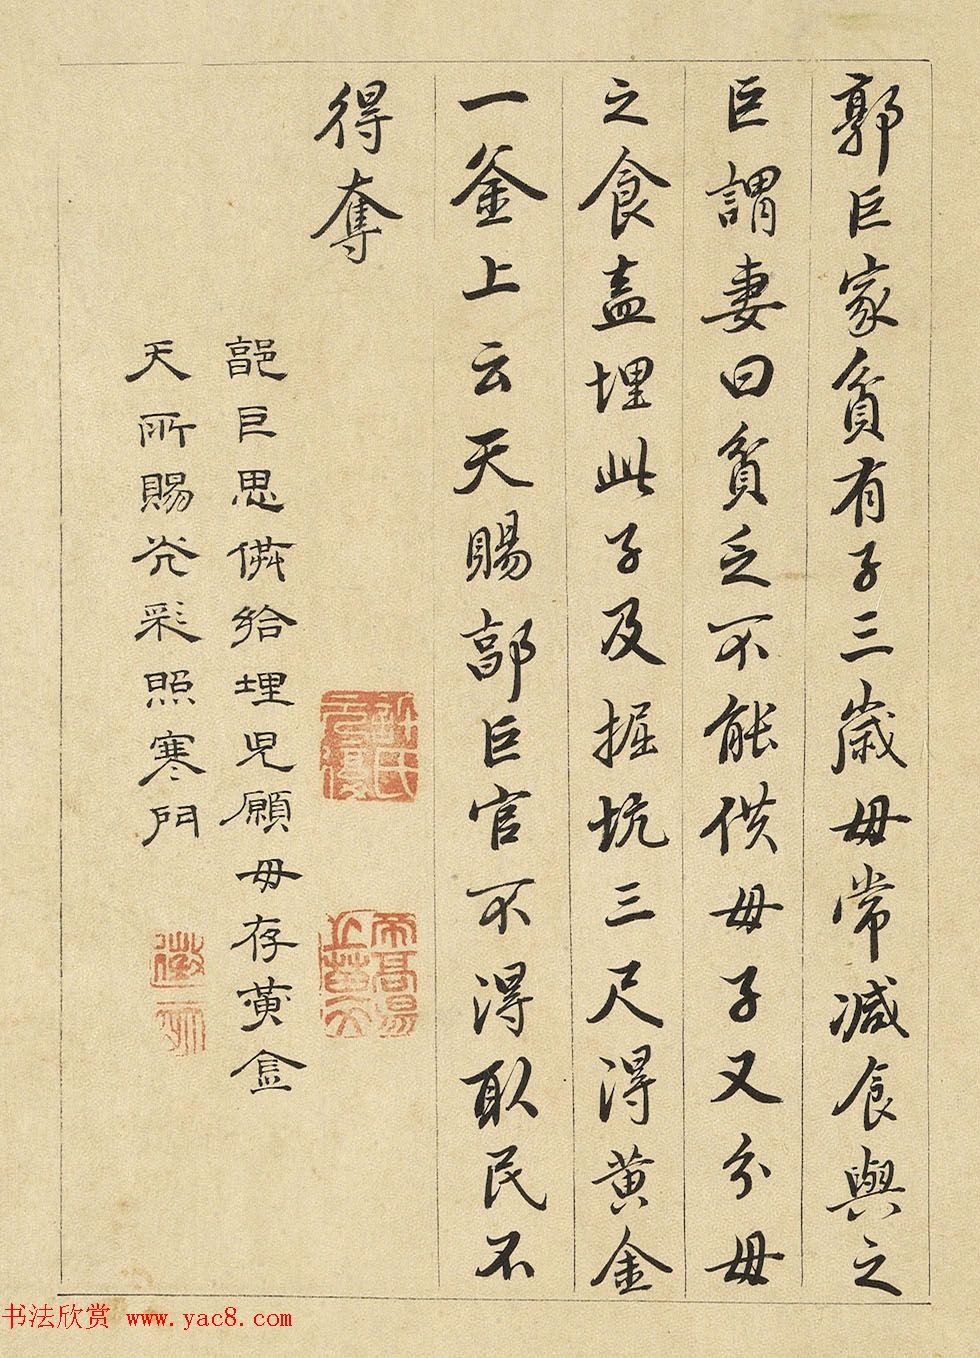 郭巨家貧有子三歲母常減食與之
巨謂妻曰貧乏不能供母子又分母
之食盍埋此子及掘坑三尺得黃金
一釜上云天賜郭巨官不得取民不
得奪
郭巨思供給埋児願母存黃金
天所賜光彩照寒門
书法欣赏 www.yac8.com